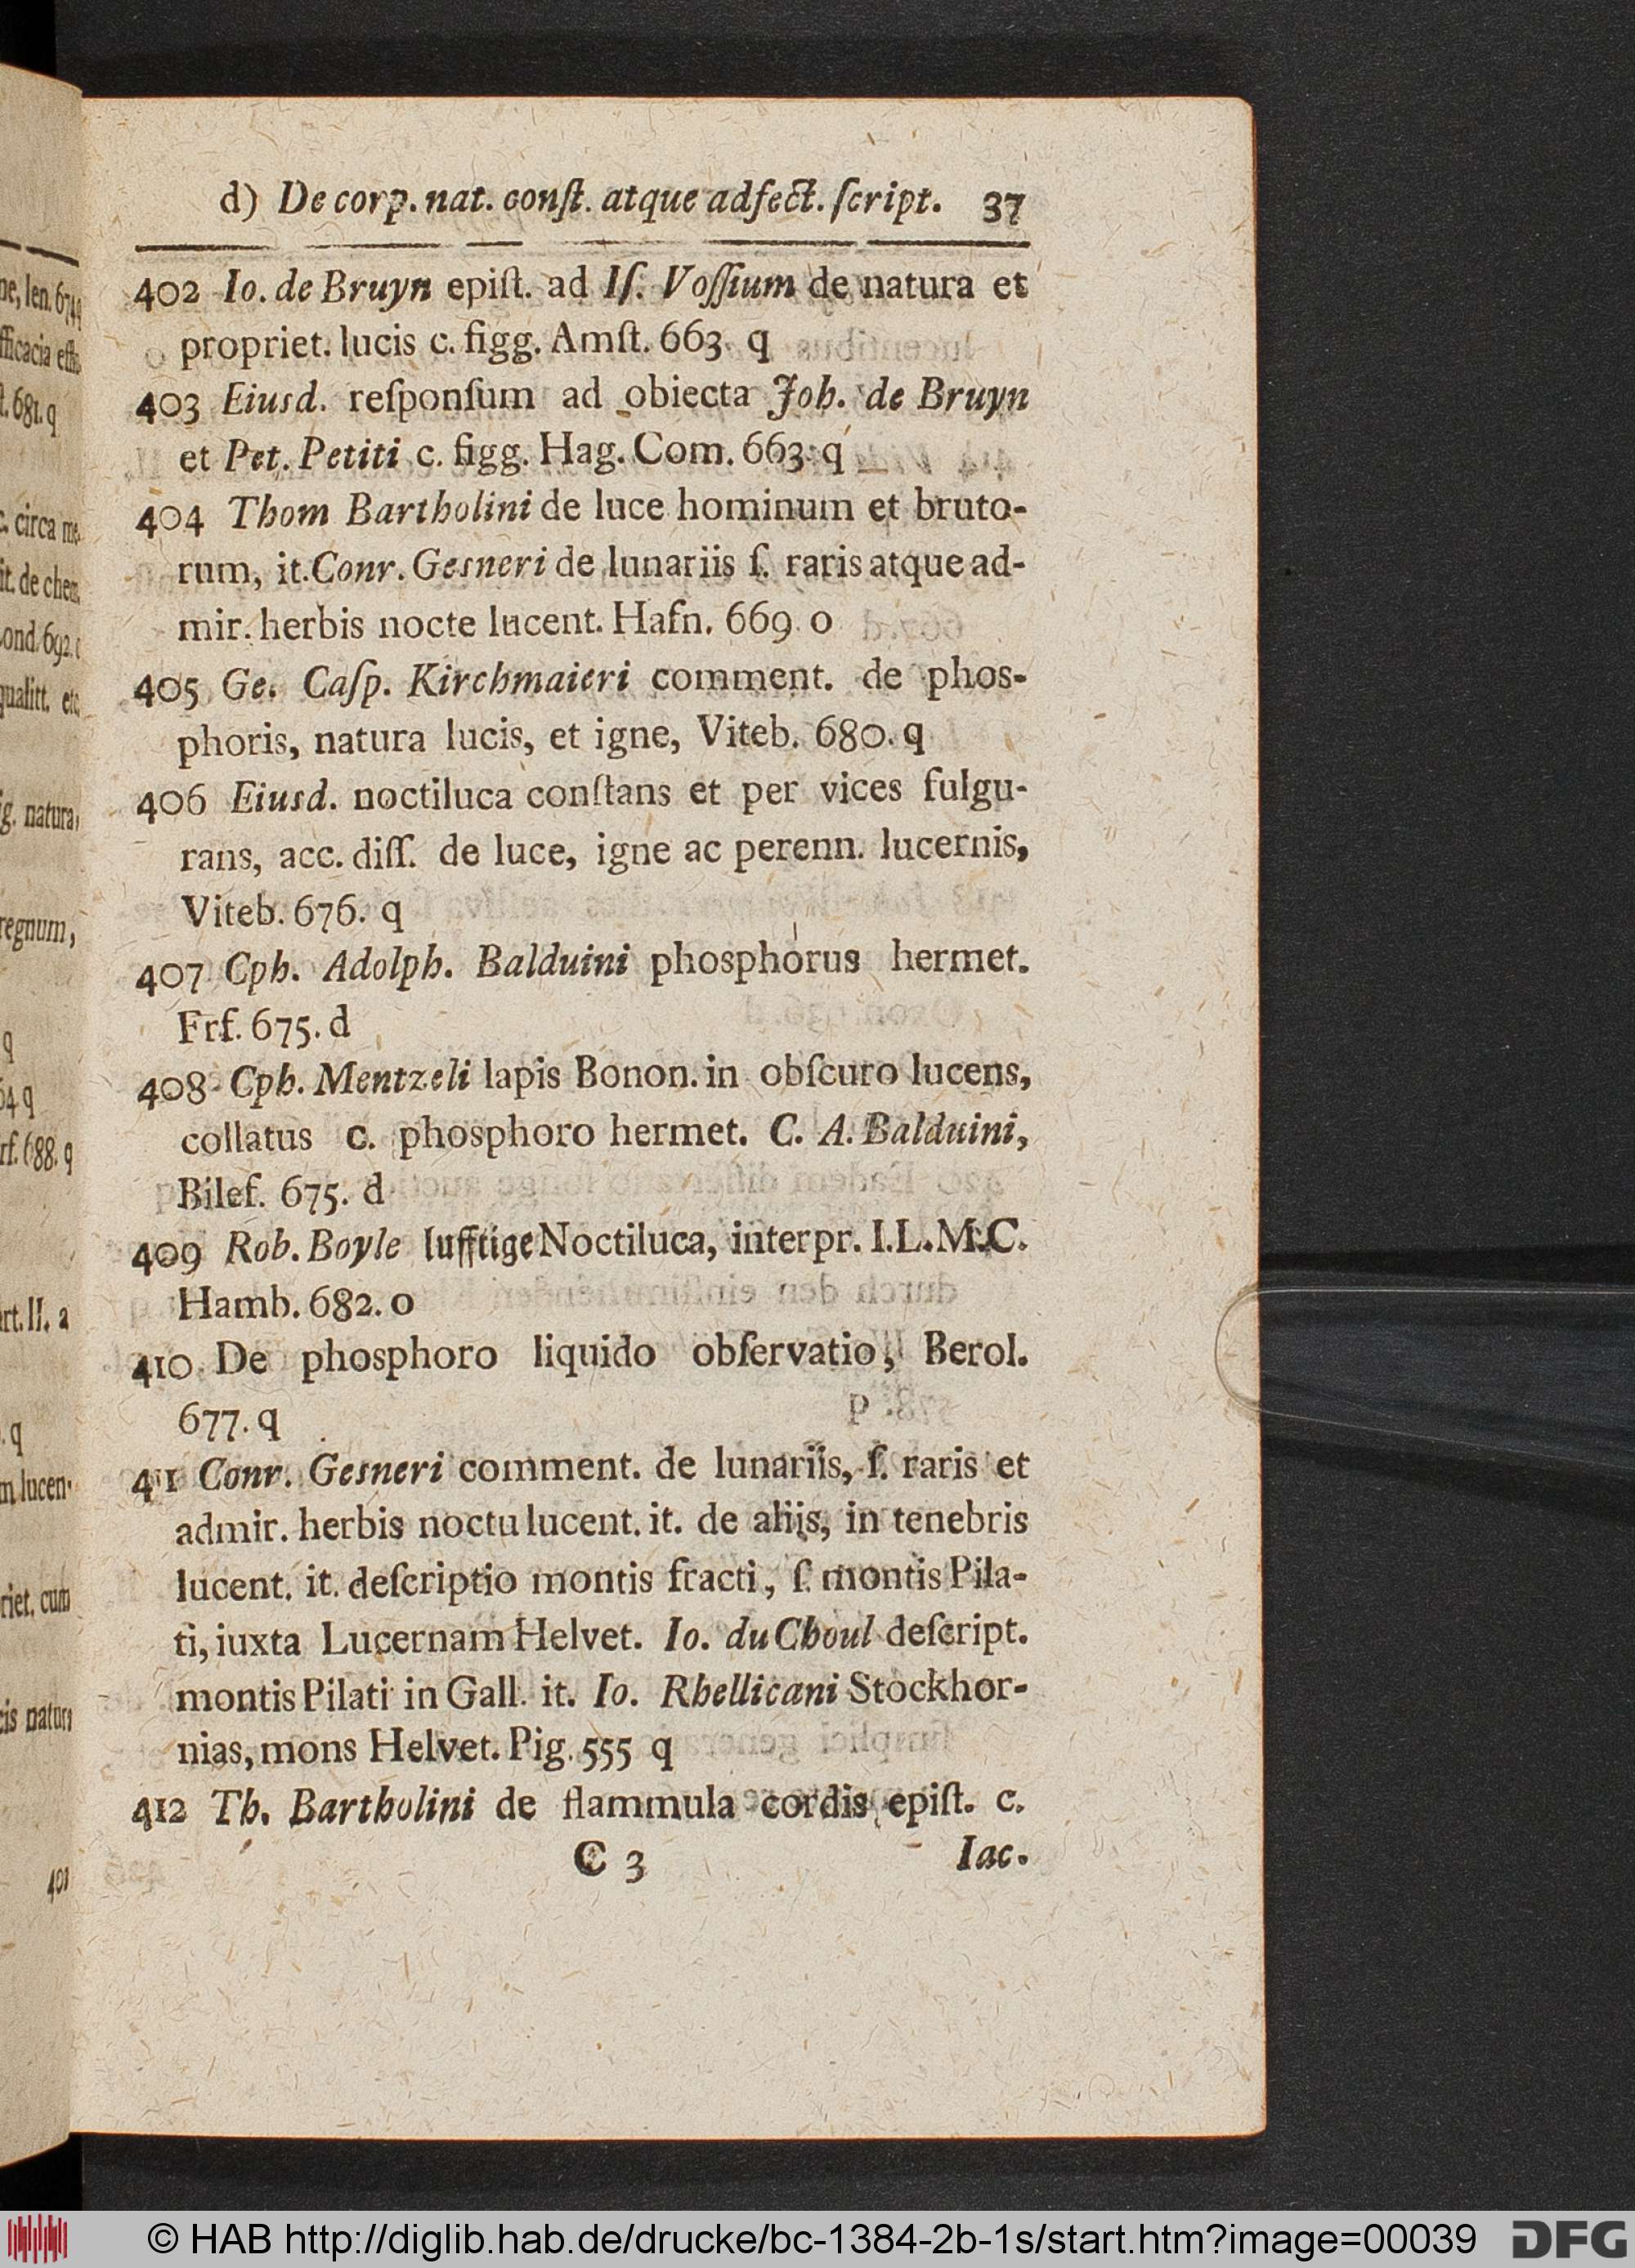 d) De corp. nat. conſt. atque adfect. ſcript. 37
402 Io. de Bruyn epiſt. ad Iſ. Voſſium de natura et
propriet. lucis c. figg. Amſt. 663. q
403 Eiusd. reſponſum ad obiecta Joh. de Bruyn
et Pet. Petiti c. figg. Hag. Com. 663. q
404 Thom Bartholini de luce hominum et bruto-
rum, it. Conr. Gesneri de lunariis ſ. raris atque ad-
mir. herbis nocte lucent. Hafn. 669. o
405 Ge. Caſp. Kirchmaieri comment. de phos-
phoris, natura lucis, et igne, Viteb. 680. q
406 Eiusd. noctiluca conſtans et per vices fulgu-
rans, acc. diſſ. de luce, igne ac perenn. lucernis,
Viteb. 676. q
407 Cph. Adolph. Balduini phosphorus hermet.
Frf. 675. d
408 Cph. Mentzeli lapis Bonon. in obſcuro lucens,
collatus c. phosphoro hermet. C. A. Balduini,
Bilef. 675. d
409 Rob. Boyle lufftige Noctiluca, interpr. I. L. M. C.
Hamb. 682. o
410 De phosphoro liquido obſervatio, Berol.
677. q
411 Conr. Gesneri comment. de lunariis, ſ. raris et
admir. herbis noctu lucent. it. de aliis, in tenebris
lucent. it. deſcriptio montis fracti, ſ. montis Pila-
ti, iuxta Lucernam Helvet. Io. du Choul deſcript.
montis Pilati in Gall. it. Io. Rhellicani Stockhor-
nias, mons Helvet. Pig. 555 q
412 Th. Bartholini de flammula cordis epiſt. c.
C 3 Iac.
ne, len. 674 q
681. q
c. circa me-
it. de chem.
ond. 692.
qualitt. etc
g. natura,
regnum,
q
64 q
rf. 688. q
art. II. a
. q
m lucen-
riet. cum
cis natura
© HAB http://diglib.hab.de/drucke/bc-1384-2b-1s/start.htm?image=00039 DFG